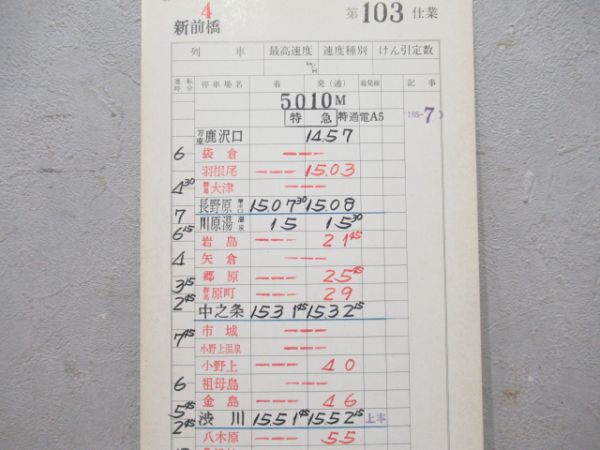 4
新前橋
第103仕業
列車 最高速度 速度種別 けん引定数
km/H
運転時分 停車場名 着 発(通) 着発線 記事
5010M
特急 特通電A5
万座鹿沢口 14.57
6 袋倉
羽根尾 15.03
4 30 群馬大津
長野原草津口 15.07 30 15.08
7
川原湯温泉 15 15 30
6 15
岩島 21 45
4 矢倉
郷原 25 45
3 15
群馬原町 29
2 45
中之条 15.31 45 15.32 15
市城
7 45
小野上温泉
小野上 40
6 祖母島
金島 46
5 45
渋川 15.51 45 15.52 15 上本
2 45
八木原 55